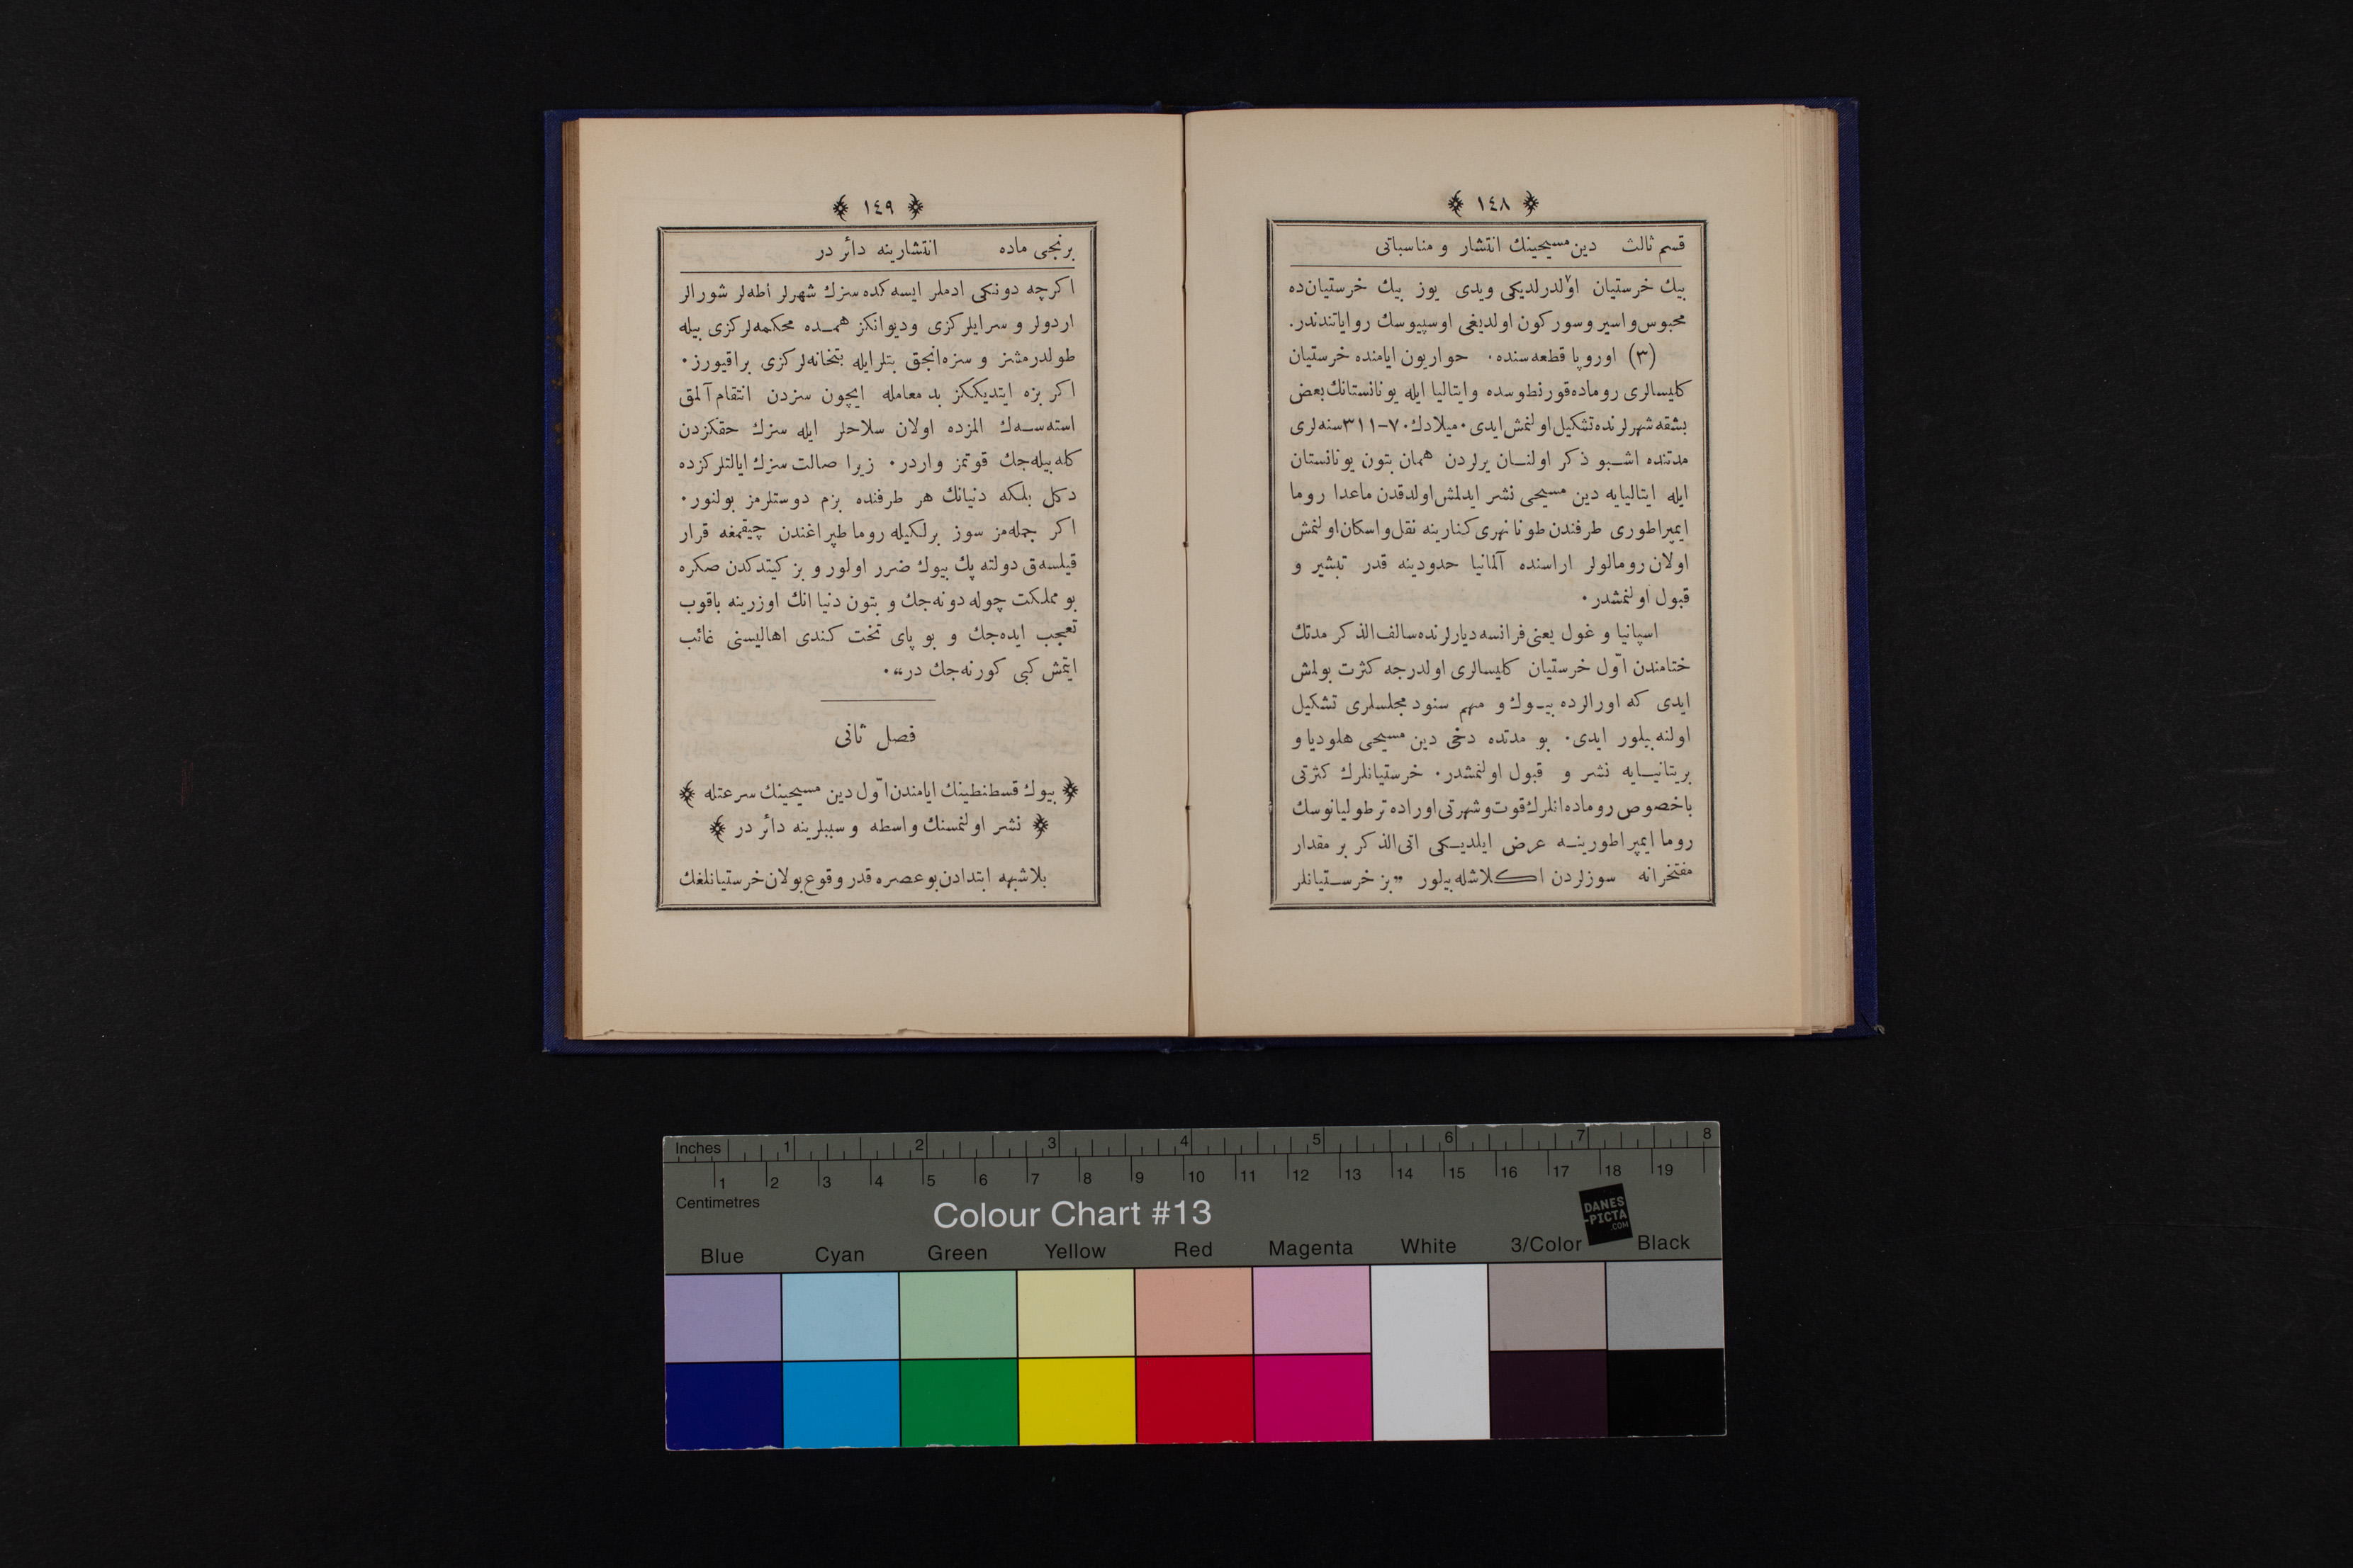 ﴿ ١٤٨ ﴾
قسم ثالث دين مسيحينك انتشار و مناسباتى
بيك خرستيان اولدرلديكى ويدى يوز بيك خرستيان‌ده
محبوس واسير وسوركون اولديغى اوسپيوسك رواياتندندر.
(٣) اوروپا قطعه‌سنده. حواريون ايامنده خرستيان
كليسالرى روماده قورنطوسده وايتاليا ايله يونانستانك بعض
بشقه شهرلرنده تشكيل اولنمش ايدى. ميلادك ٧٠-٣١١ سنه‌لرى
مدتنده اشبو ذكر اولنان يرلردن همان بتون يونانستان
ايله ايتاليايه دين مسيحى نشر ايدلمش اولدقدن ماعدا روما
ايمپراطورى طرفندن طونا نهرى كنارينه نقل واسكان اولنمش
اولان رومالولر اراسنده آلمانيا حدودينه قدر تبشير و
قبول اولنمشدر.
اسپانيا و غول يعنى فرانسه ديارلرنده سالف الذكر مدتك
ختامندن اوّل خرستيان كليسالرى اولدرجه كثرت بولمش
ايدى كه اورالرده بيوك و مهم سنود مجلسلرى تشكيل
اولنه بيلور ايدى. بو مدتده دخى دين مسيحى هلوديا و
بريتانيايه نشر و قبول اولنمشدر. خرستيانلرك كثرتى
باخصوص روماده انلرك قوت وشهرتى اوراده ترطوليانوسك
روما ايمپراطورينه عرض ايلديكى اتى الذكر بر مقدار
مفتخرانه سوزلردن اكلاشله بيلور „بز خرستيانلر
﴿ ١٤٩ ﴾
برنجى ماده انتشارينه دائر در
اكرچه دونكى ادملر ايسه‌كده سزك شهرلر اطه‌لر شورالر
اردولر و سرايلركزى وديوانكز همده محكمه‌لركزى بيله
طولدرمشز و سزه انجق بتلر ايله بتخانه‌لركزى براقيورز.
اكر بزه ايتديككز بد معامله ايچون سزدن انتقام آلمق
استه‌سه‌ك المزده اولان سلاحلر ايله سزك حقكزدن
كله بيله‌جك قوتمز واردر. زيرا صالت سزك ايالتلركزده
دكل بلكه دنيانك هر طرفنده بزم دوستلرمز بولنور.
اكر جمله‌مز سوز برلكيله روما طپراغندن چيقمغه قرار
قيلسه‌ق دولته پك بيوك ضرر اولور و بز كيتدكدن صكره
بو مملكت چوله دونه‌جك و بتون دنيا انك اوزرينه باقوب
تعجب ايده‌جك و بو پاى تخت كندى اهاليسنى غائب
ايتمش كبى كورنه‌جك در“.
فصل ثانى
﴿ بيوك قسطنطينك ايامندن اوّل دين مسيحينك سرعتله ﴾
﴿ نشر اولنمسنك واسطه وسببلرينه دائر در ﴾
بلاشبهه ابتدادن بو عصره قدر وقوع بولان خرستيانلغك
Inches 1 2 3 4 5 6 7 8
1 2 3 4 5 6 7 8 9 10 11 12 13 14 15 16 17 18 19
Centimetres
Colour Chart #13
DANES
-PICTA
.COM
Blue Cyan Green Yellow Red Magenta White 3/Color Black